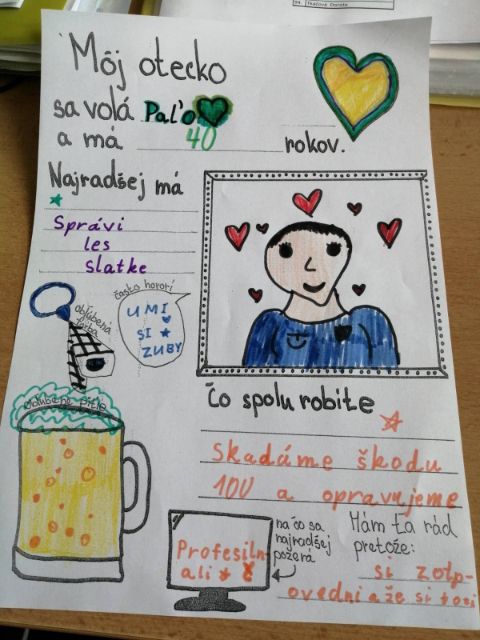 Môj otecko
sa volá Paľo
a má 40 rokov.
Najradšej má
Správi
les
slatke
často hovorí
UMI
SI
ZUBY
obľúbená
obľúbené pitie
Čo spolu robíte
Skadáme škodu
100 a opravujeme
na čo sa
najradšej
pozerá
Profesiln-
ali
Mám Ťa rád
pretože:
si zotp-
ovedni a že si